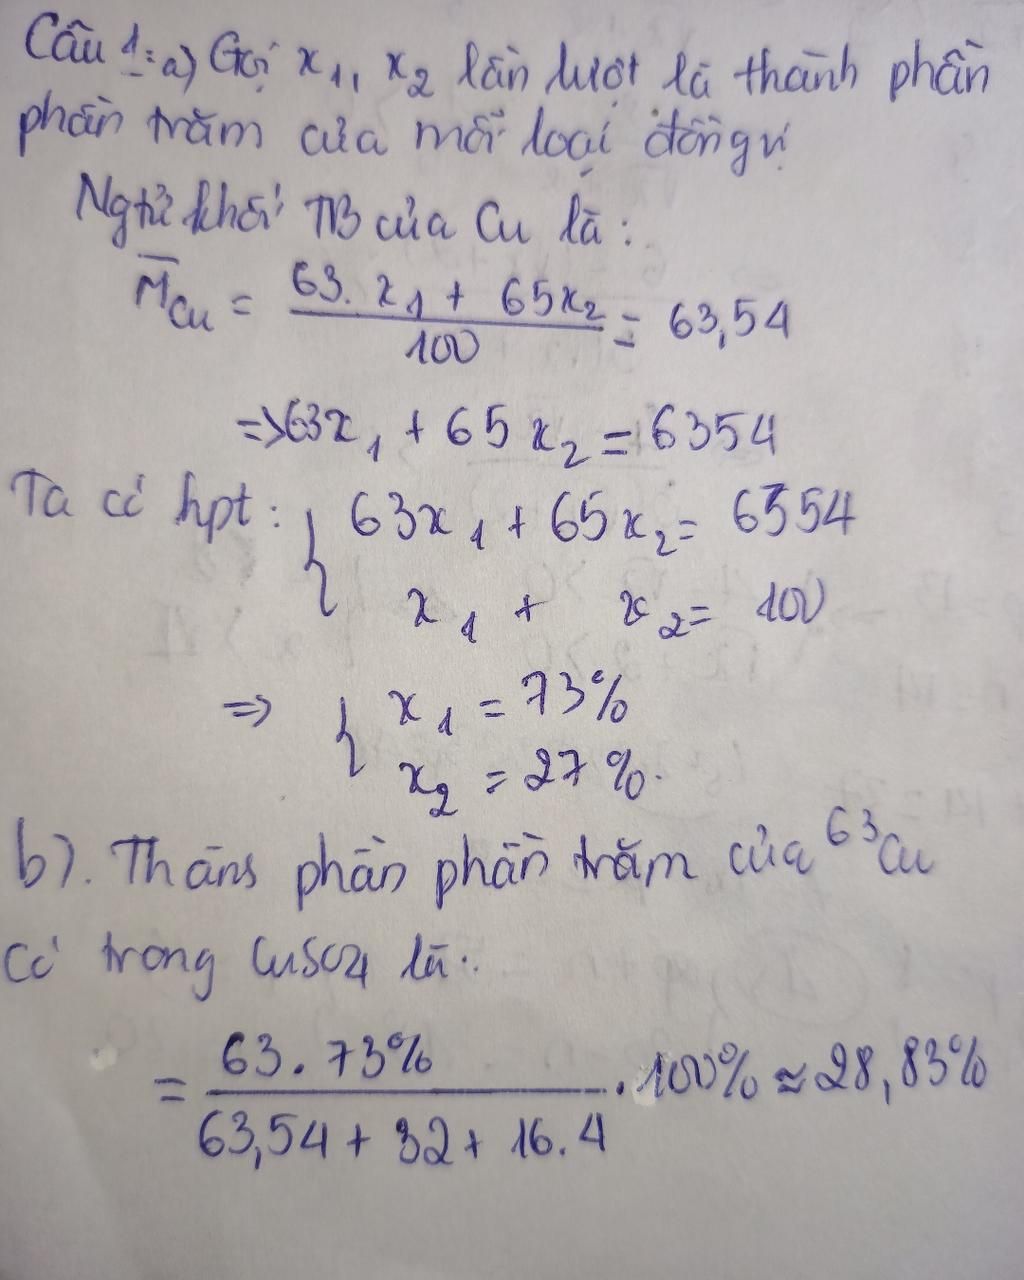 Câu 1: a) Gọi x₁, x₂ lần lượt là thành phần
phần trăm của mỗi loại đồng vị
Ngtử khối TB của Cu là:
M̅Cu = (63.x₁ + 65x₂)/100 = 63,54
=> 63x₁ + 65x₂ = 6354
Ta có hpt: { 63x₁ + 65x₂ = 6354
x₁ + x₂ = 100
=> { x₁ = 73%
x₂ = 27%.
b). Thành phần phần trăm của ⁶³Cu
có trong CuSO4 là:
= (63.73%)/(63,54 + 32 + 16.4) . 100% ≈ 28,83%